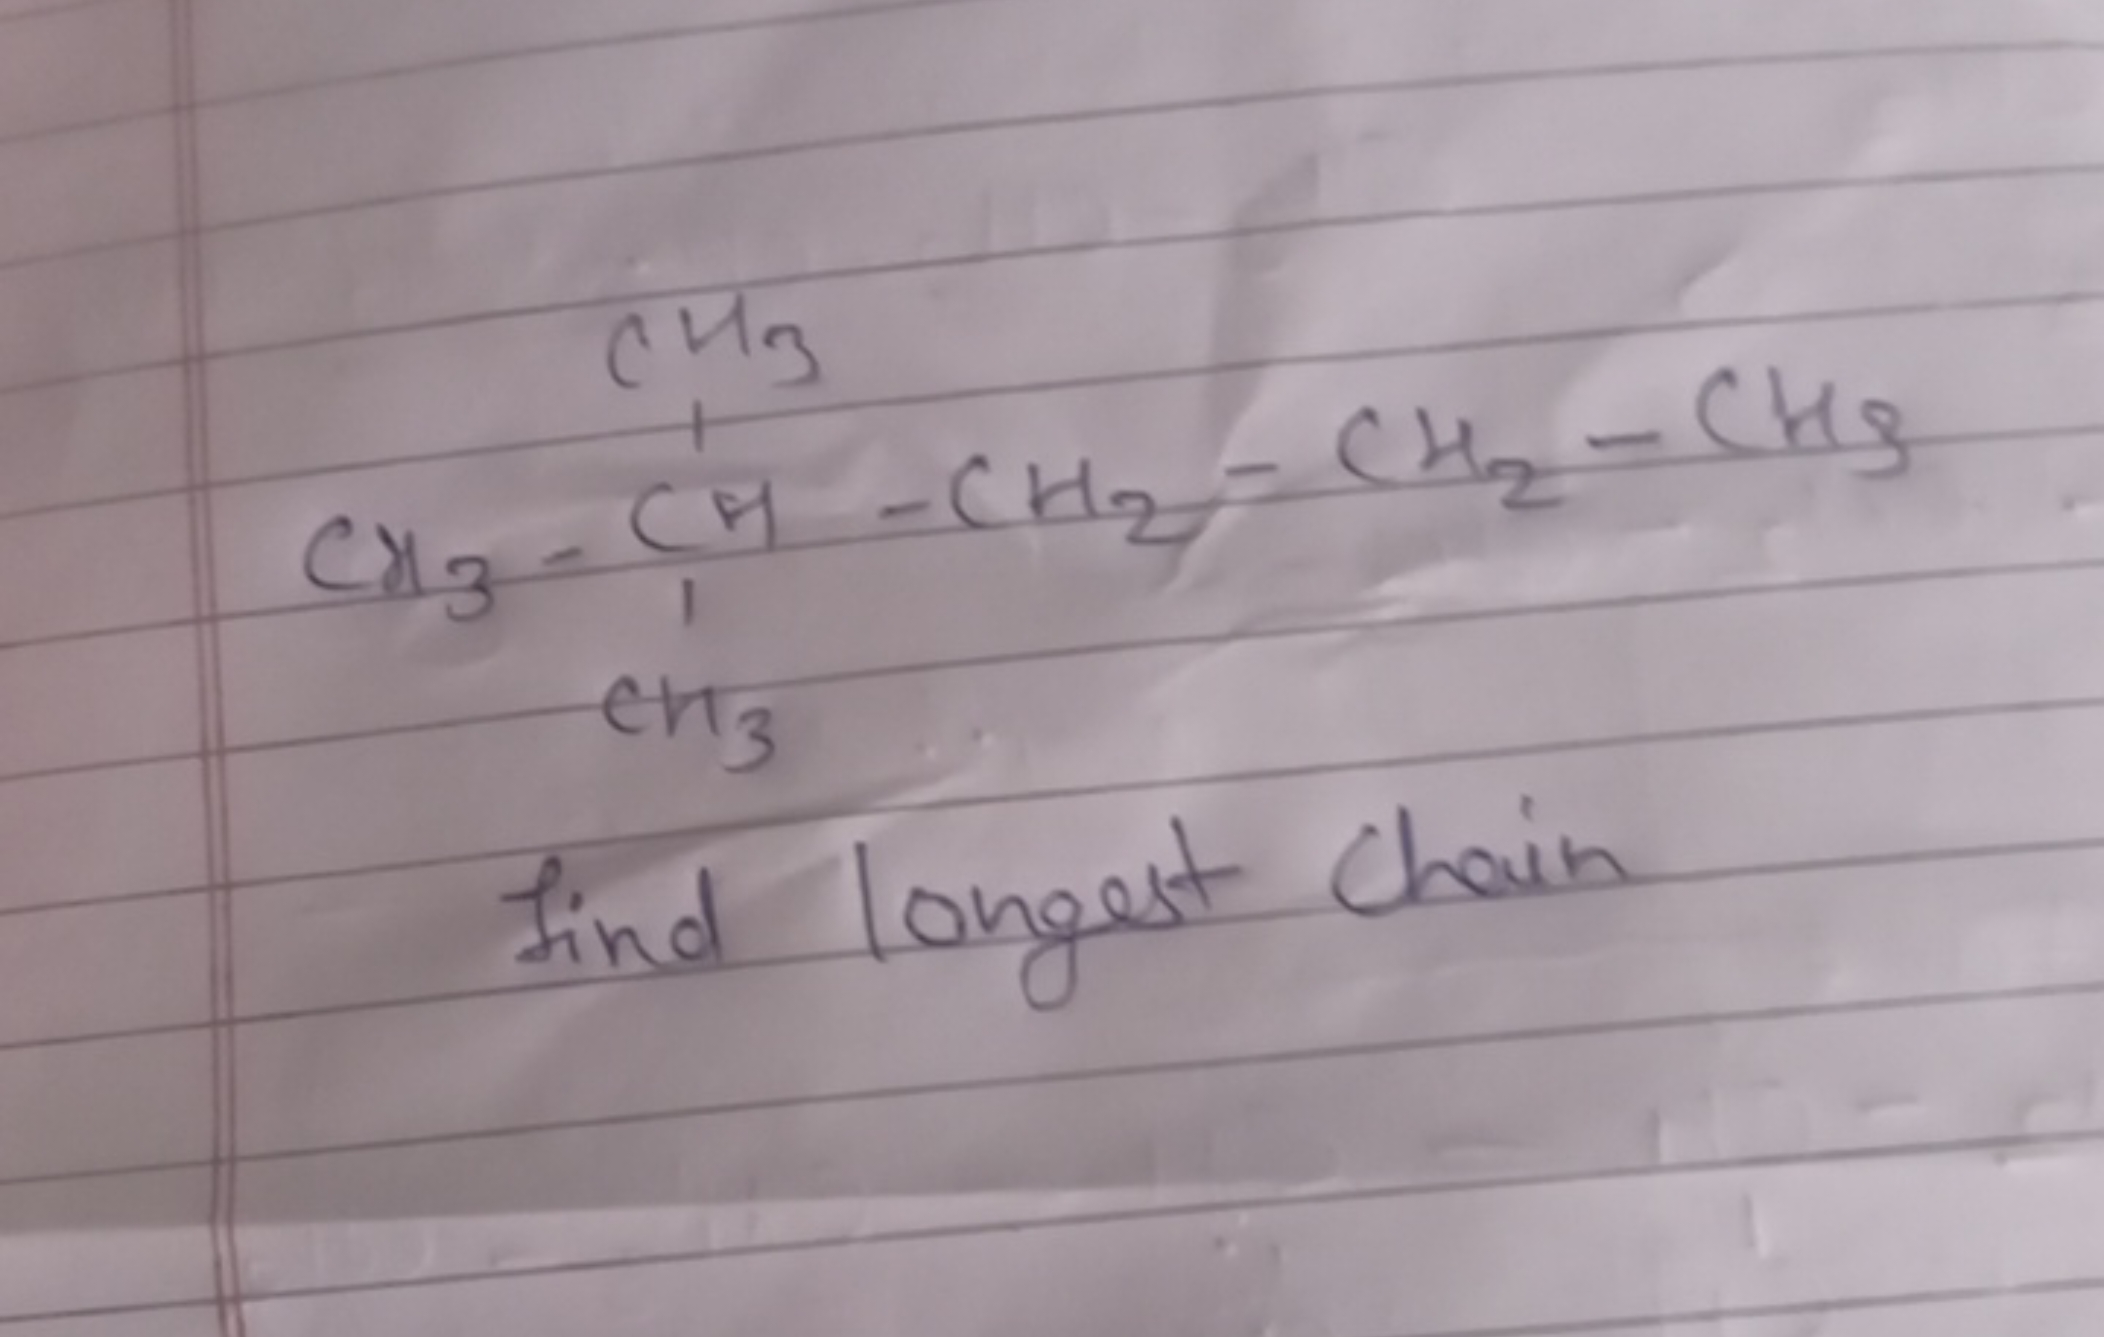 CH3
CH3 - CH - CH2 - CH2 - CH3
CH3
find longest chain